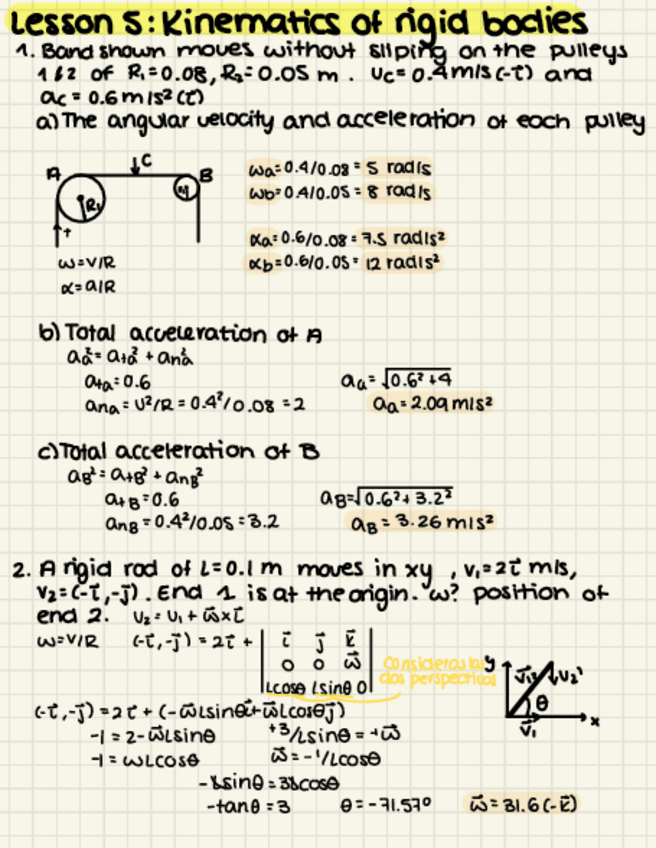 Lesson 5: Kinematics of rigid bodies
1. Band shown moves without sliping on the pulleys
1 & 2 of R₁=0.08, R₂=0.05 m. Uc= 0.4m/s (-i) and
ac = 0.6 m/s² (i)
a) The angular velocity and acceleration of each pulley
A C B
R₁
+
ωa=0.4/0.08 = 5 rad/s
ωb=0.4/0.05 = 8 rad/s
ω=V/R
α=a/R
αa=0.6/0.08=7.5 rad/s²
αb=0.6/0.05= 12 rad/s²
b) Total acceleration of A
aa²= ata² + ana²
ata=0.6
ana= U²/R = 0.4²/0.08 = 2
aa= √0.6²+4
aa=2.09 m/s²
c) Total acceleration of B
aB²= atB² + anB²
atB=0.6
anB=0.4²/0.05=3.2
aB=√0.6²+3.2²
aB= 3.26 m/s²
2. A rigid rod of L=0.1 m moves in xy, v₁=2i m/s,
v₂=(-i,-j). End 1 is at the origin. ω? position of
end 2. U₂= U₁+ ω×L
ω=V/R (-i,-j) = 2i + | i j k
0 0 ω
Lcosθ Lsinθ 0 |
Consideras las
dos perspectivas
y x θ U₂' V₁
(-i,-j)=2i+(-ωLsinθi+ωLcosθj)
-1=2-ωLsinθ +3/Lsinθ=+ω
-1=ωLcosθ ω=-1/Lcosθ
-Lsinθ=3Lcosθ
-tanθ=3 θ=-71.57° ω=31.6(-k)